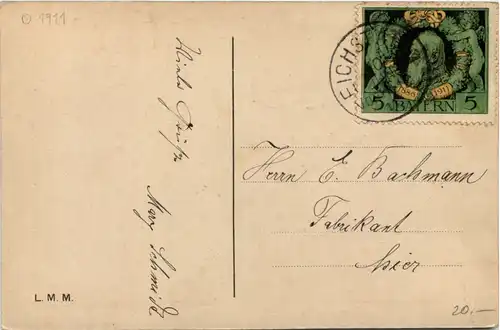 O 1911.
Viele Grüße
Max Schmidt
L. M. M.
EICHST
1886 1911
5 BAYERN 5
Herrn E. Bachmann
Fabrikant
hier
20.-